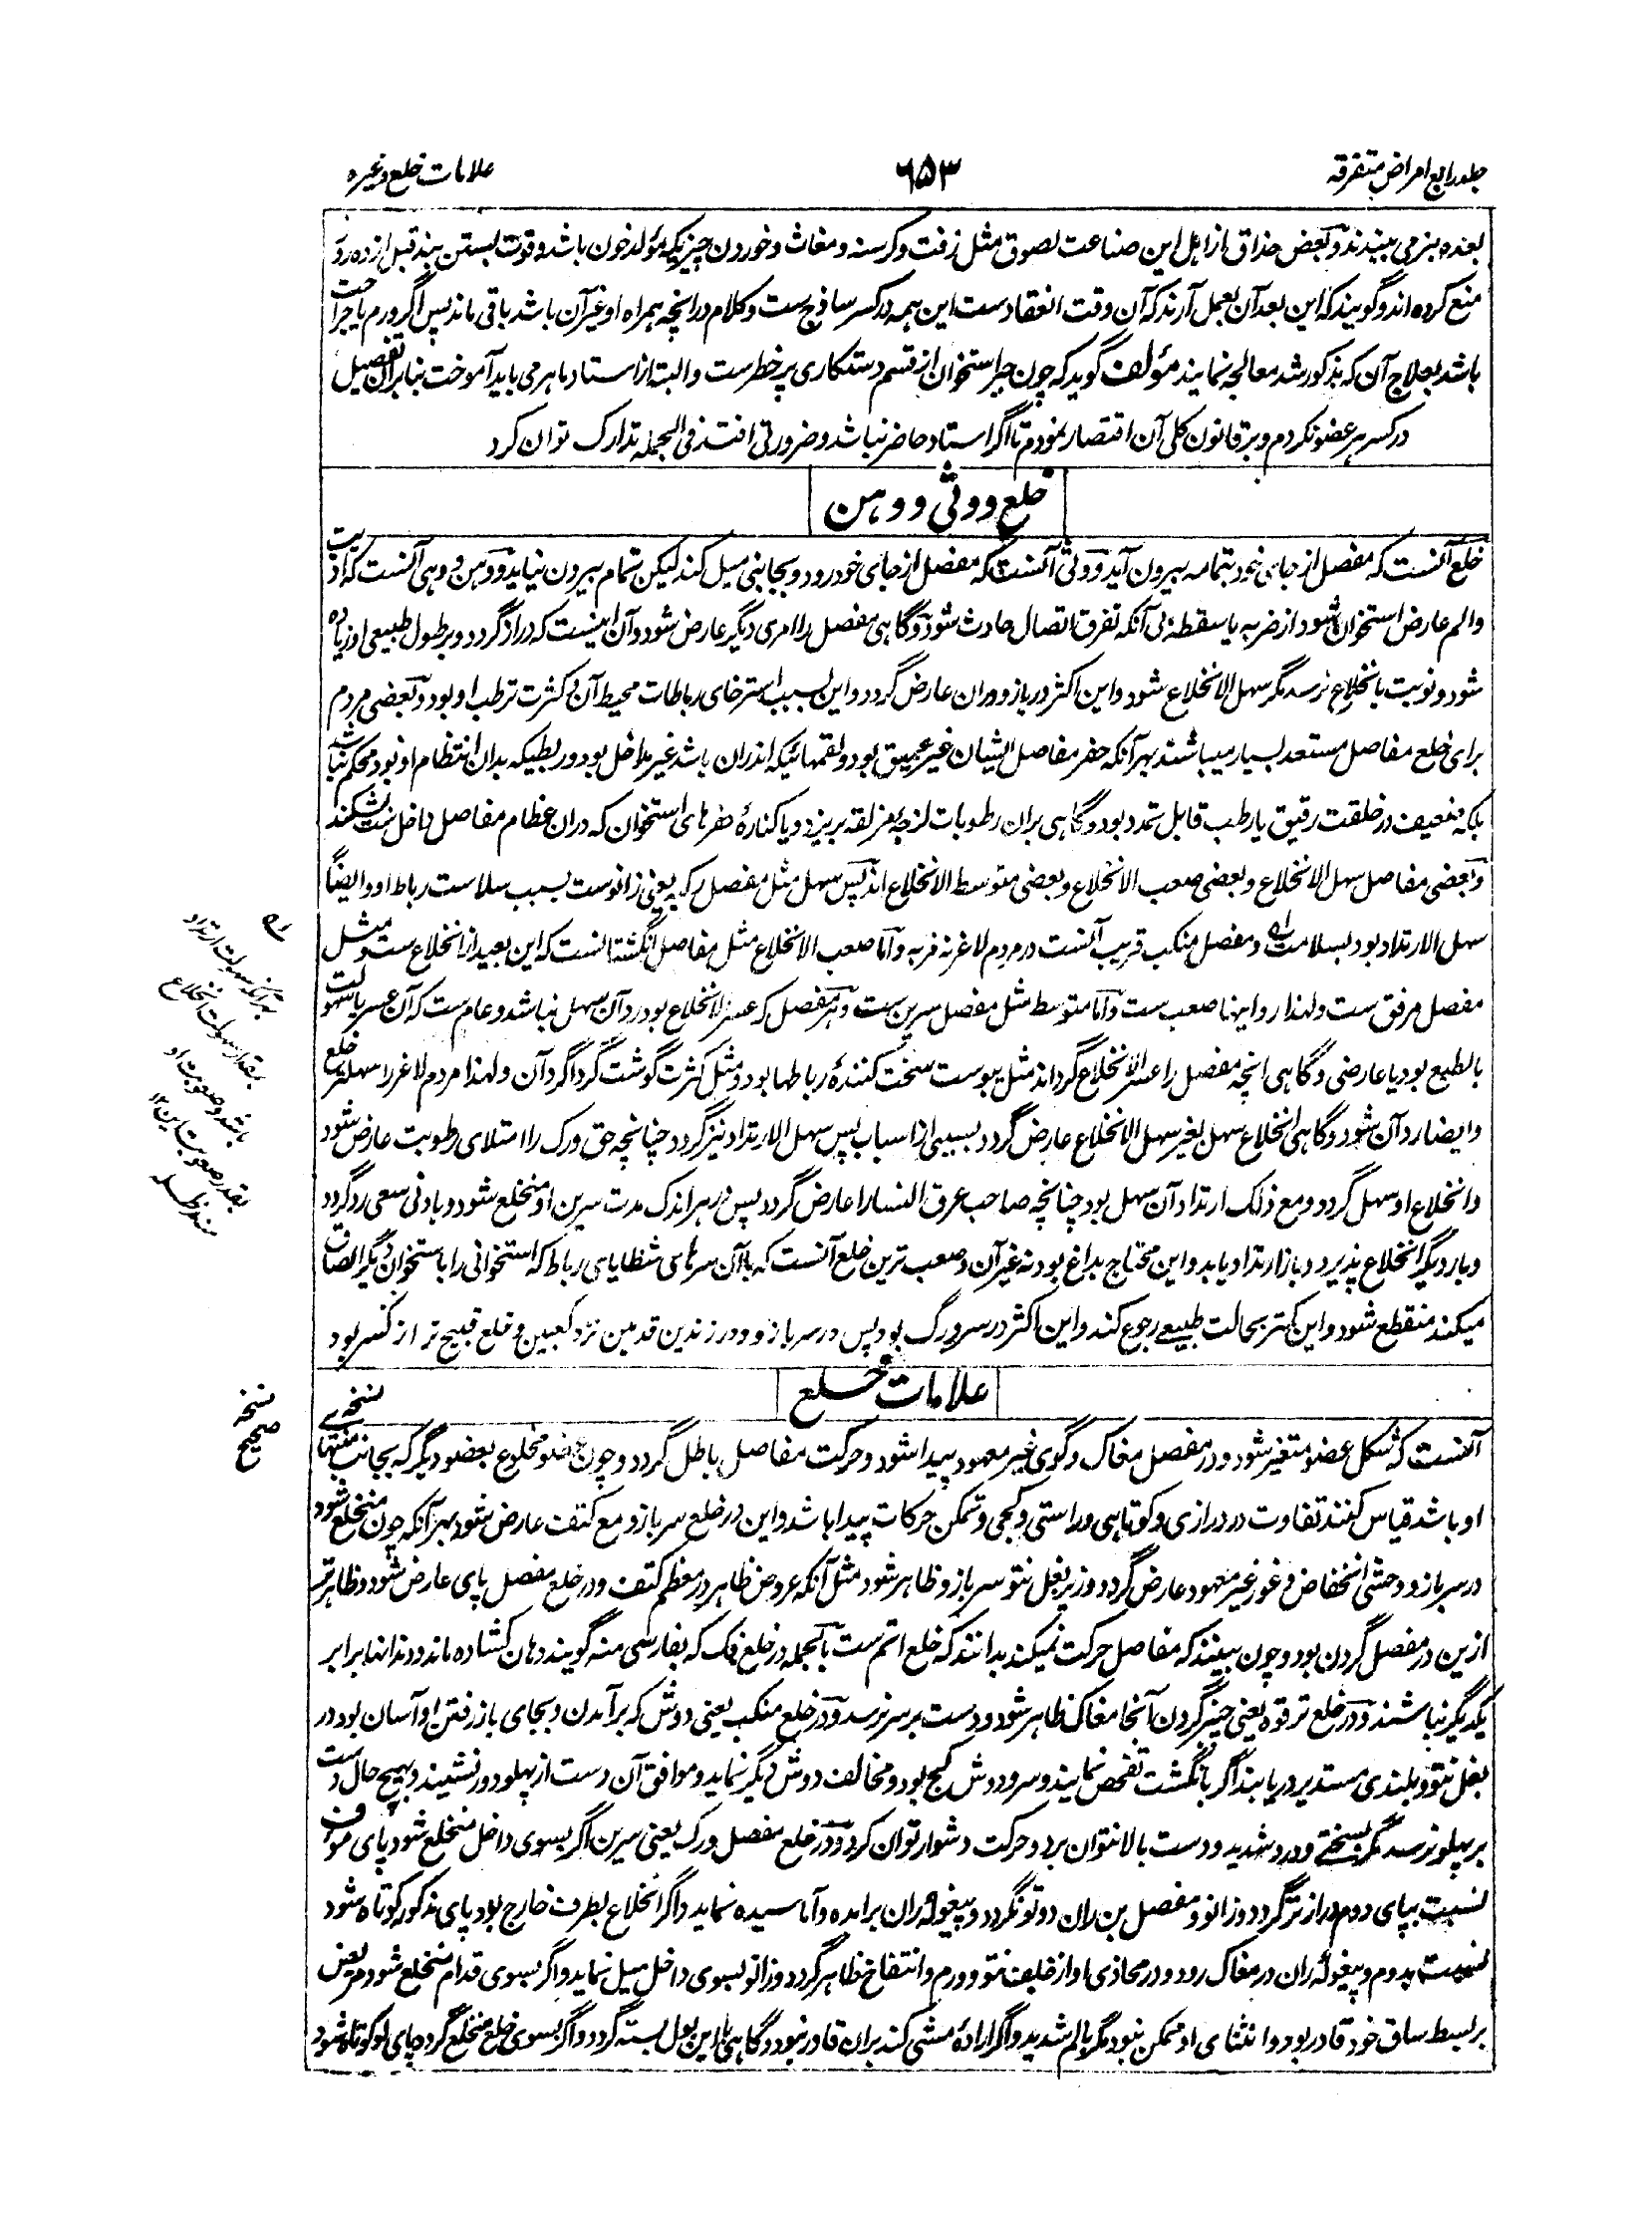 جلد رابع امراض متفرقه
۶۵۳
علامات خلع وغیره
بعده بنرمی ببندند و بعض حذاق از اهل این صناعت لصوق مثل زفت و کرسنه و مغاث و خوردن چیزیکه مولد خون باشد وقت بستن بند قبل از ده روز
منع کرده اند و گویند که این بعد آن بعمل آرند که آن وقت انعقادست این همه در کسر ساذج ست و کلام در انچه همراه او غیر آن باشد باقی ماند پس اگر ورم یا جراحت
باشد بعلاج آن که مذکور شد معالجه نمایند مؤلف گوید که چون جبر استخوان از قسم دستکاری پر خطرست و البته از استاد ماهر می باید آموخت بنابران تفصیل
در کسر هر عضو نکردم و بر قانون کلی آن اقتصار نمودم تا اگر استاد حاضر نباشد و ضرورتی افتد فی الجمله تدارک توان کرد
خلع و وثی و وهن
خلع آنست که مفصل از جای خود بتمامه بیرون آید و وثی آنست که مفصل از جای خود رود و بجانبی میل کند لیکن تمام بیرون نیاید و وهن و وهی آنست که اذیت
و الم عارض استخوان شود از ضربه یا سقطه بی آنکه تفرق اتصال حادث شود و گاهی مفصل را امری دیگر عارض شود و آن اینست که دراز گردد و بر طول طبیعی او زیاده
شود و نوبت بانخلاع نرسد مگر سهل الانخلاع شود و این اکثر در بازو و ران عارض گردد و این بسبب استرخای رباطات محیط آن و کثرت ترطب او بود و بعضی مردم
برای خلع مفاصل مستعد بسیار میباشند بهر آنکه حفر مفاصل ایشان غیر عمیق بود و لقمهائیکه اندران باشد غیر مداخل بود و ربطیکه بدان انتظام او بود محکم نباشد
بلکه ضعیف در خلقت رقیق یا رطب قابل تمدد بود و گاهی بران رطوبات لزجه مزلقه بریزد و یا کنارهٔ حفرهای استخوان که دران عظام مفاصل داخل ست بشکند
و بعضی مفاصل سهل الانخلاع و بعضی صعب الانخلاع و بعضی متوسط الانخلاع اند پس سهل مثل مفصل رکبه یعنی زانوست بسبب سلاست رباط او و ایضاً
سهل الارتداد بود بسلامت و مفصل منکب قریب آنست در مردم لاغر نه فربه و اما صعب الانخلاع مثل مفاصل انگشتانست که این بعید از انخلاع ست و مثل
مفصل مرفق ست و لهذا رد اینها صعب ست و اما متوسط مثل مفصل سرین ست و هر مفصل که عسر الانخلاع بود رد آن سهل نباشد و عام ست که آن عسر یا سهولت
بالطبع بود یا عارضی و گاهی انچه مفصل را عسر الانخلاع گرداند مثل یبوست سخت کنندهٔ رباطها بود و مثل کثرت گوشت گرداگرد آن و لهذا مردم لاغر را سهلتر خلع
و ایضا رد آن شود و گاهی انخلاع سهل بغیر سهل الانخلاع عارض گردد بسببی از اسباب پس سهل الارتداد نیز گردد چنانچه حق ورک را امتلای رطوبت عارض شود
و انخلاع او سهل گردد و مع ذلک ارتداد آن سهل بود چنانچه صاحب عرق النسا را عارض گردد پس در هر اندک مدت سرین او منخلع شود و بادنی سعی رد گردد
و بار دیگر انخلاع پذیرد و باز ارتداد یابد و این محتاج بداغ بود نه غیر آن و صعب ترین خلع آنست که با آن سرهای شظایای رباط که استخوانی را باستخوان دیگر الصاق
میکند منقطع شود و این کمتر بحالت طبیعی رجوع کند و این اکثر در سر ورک بود پس در سر بازو و در زندین قدمین نزد کعبین و خلع قبیح تر از کسر بود
علامات خلع
آنست که شکل عضو متغیر شود و در مفصل مغاک و گوی غیر معهود پیدا شود و حرکت مفاصل باطل گردد و چون عضو مخلوع بعضو دیگر که بجانب منتهای
او باشد قیاس کنند تفاوت در درازی و کوتاهی و راستی و کجی و تمکن حرکات پیدا باشد و این در خلع سر بازو مع کتف عارض شود بهر آنکه چون منخلع شود
در سر بازو وحشی انخفاض و غور غیر معهود عارض گردد و زیر بغل نتو سر بازو ظاهر شود مثل آنکه عروض ظاهر در معظم کتف و در خلع مفصل پای عارض شود و ظاهر تر
ازین در مفصل گردن بود و چون ببینند که مفاصل حرکت نمیکند بدانند که خلع اتم ست بالجمله در خلع فک که بفارسی منه گویند دهان کشاده ماند و دندانها برابر
یکدیگر نباشند و در خلع ترقوه یعنی چنبر گردن آنجا مغاک ظاهر شود و دست بر سر نرسد و در خلع منکب یعنی دوش که برآمدن و بجای باز رفتن او آسان بود در
بغل نتو و بلندی مستدیر دریابند اگر بانگشت تفحص نمایند و سر دوش کج بود و مخالف دوش دیگر نماید و موافق آن دست از پهلو دور نشیند و بهیچ حال دست
بر پهلو نرسد مگر بسختی و درد شدید و دست بالا نتوان برد و حرکت دشوار توان کرد و در خلع مفصل ورک یعنی سرین اگر بسوی داخل منخلع شود پای موؤف
نسبت بپای دوم دراز تر گردد و زانو و مفصل بن ران دو تو نگردد و پیغوله ران برآمده و آماسیده نماید و اگر انخلاع بطرف خارج بود پای مذکور کوتاه شود
نسبت بدوم و پیغولهٔ ران در مغاک رود و در محاذی او از خلف نتو و ورم و انتفاخ ظاهر گردد و زانو بسوی داخل میل نماید و اگر بسوی قدام منخلع شود مریض
بر بسط ساق خود قادر بود و انثنای او ممکن نبود مگر بالم شدید و اگر ارادهٔ مشی کند بران قادر نبود و گاهی با این بول بسته گردد و اگر بسوی خلف منخلع گردد پای او کوتاه شود
بهر آنکه سهولت ارتداد
بقدر سهولت انخلاع
باشد و صعوبت او
بقدر صعوبت این ۱۲
نسخه
صحیح